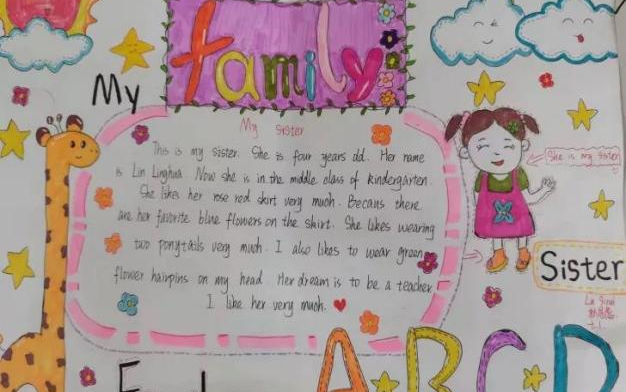 family
My
My Sister
This is my sister. She is four years old. Her name
is Lin Linghua. Now she is in the middle class of kindergarten.
She likes her rose red skirt very much. Becaus there
are her favorite blue flowers on the shirt. She likes wearing
two ponytails very much. I also likes to wear green
flower hairpins on my head. Her dream is to be a teacher
I like her very much.
She is my sister
Sister
A B C D